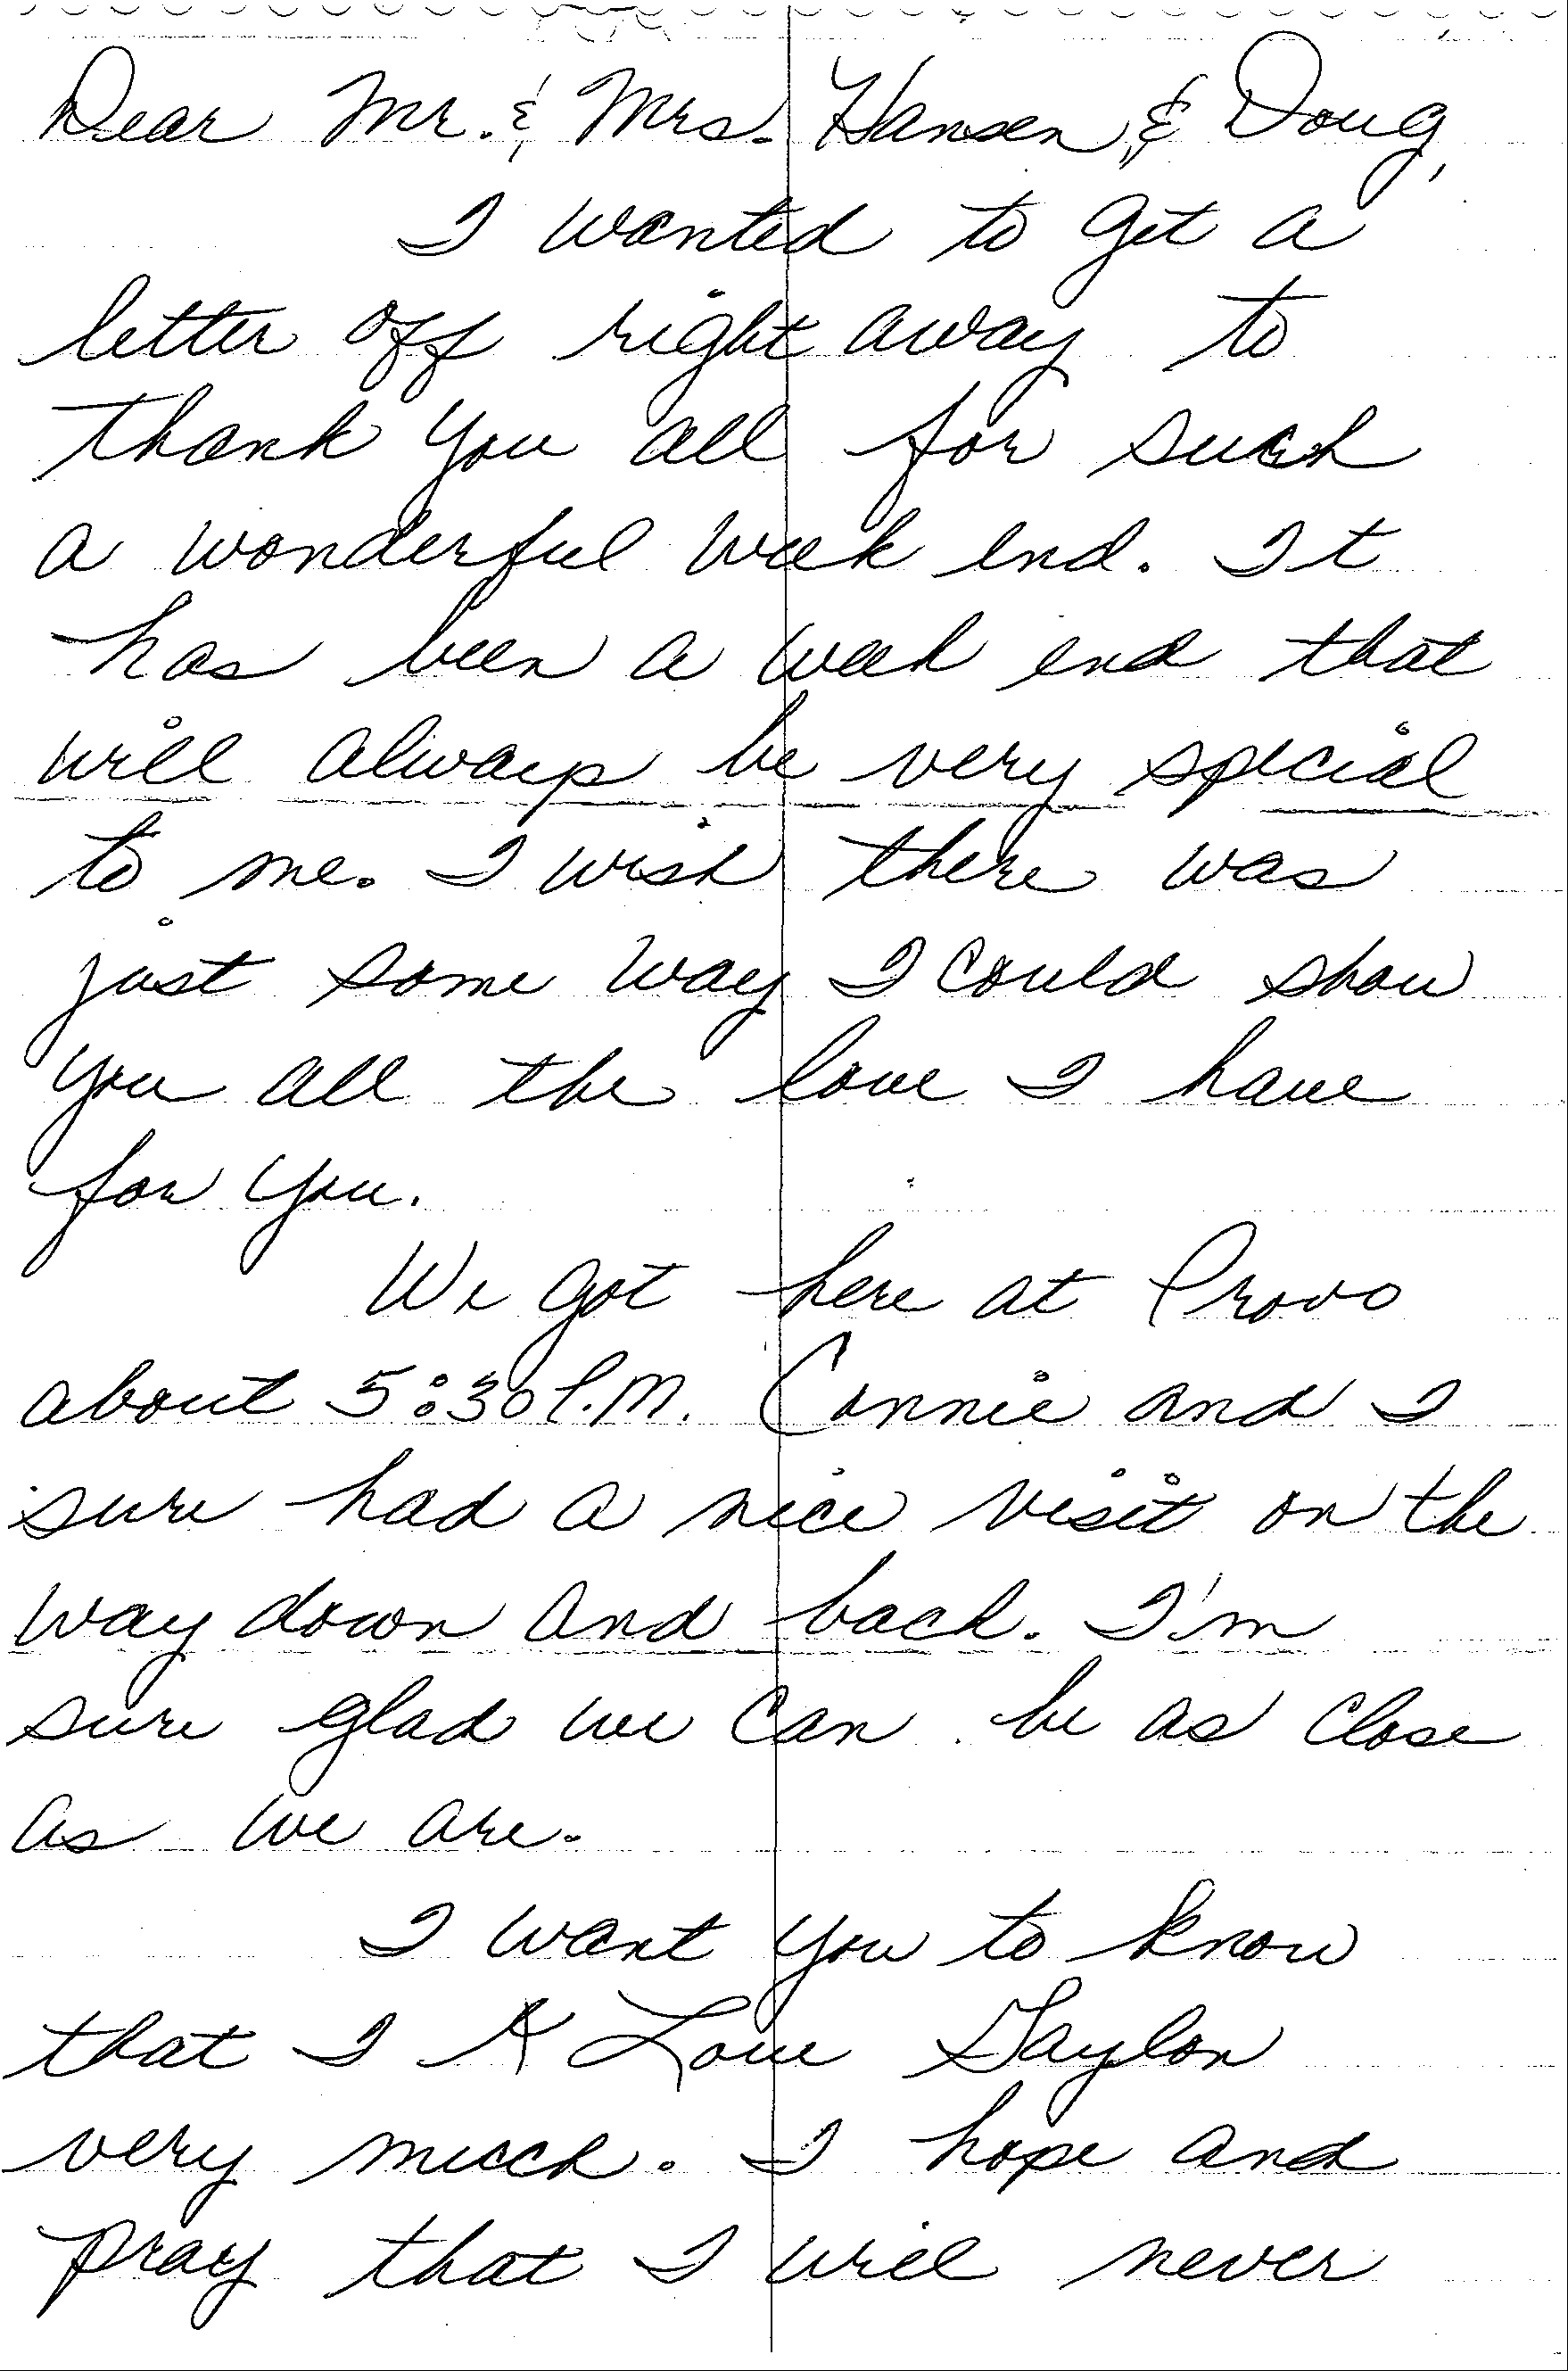 Dear Mr. & Mrs. Hansen & Doug,
I wanted to get a
letter off right away to
thank you all for such
a wonderful week end. It
has been a week end that
will always be very special
to me. I wish there was
just some way I could show
you all the love I have
for you.
We got here at Provo
about 5:30 P.M. Connie and I
sure had a nice visit on the
way down and back. I'm
sure glad we can be as close
as we are.
I want you to know
that I Love Gaylon
very much. I hope and
pray that I will never